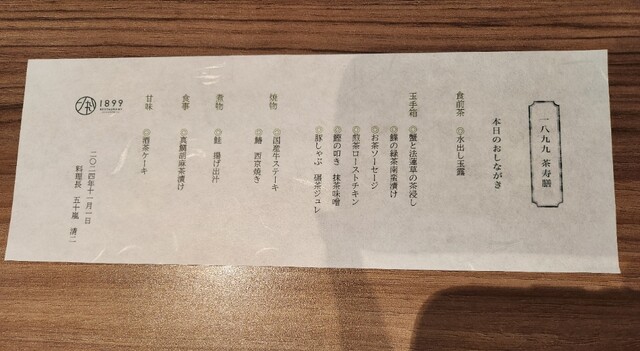 一八九九 茶寿膳
本日のおしながき
食前茶
◎水出し玉露
玉手箱
◎蟹と法蓮草の茶浸し
◎鰈の緑茶南蛮漬け
◎お茶ソーセージ
◎煎茶ローストチキン
◎鰹の叩き 抹茶味噌
◎豚しゃぶ 碾茶ジュレ
焼物
◎国産牛ステーキ
◎鰆 西京焼き
煮物
◎鮭 揚げ出汁
食事
◎真鯛胡麻茶漬け
甘味
◎酒茶ケーキ
二〇二四年十一月一日
料理長 五十嵐 清二
1899